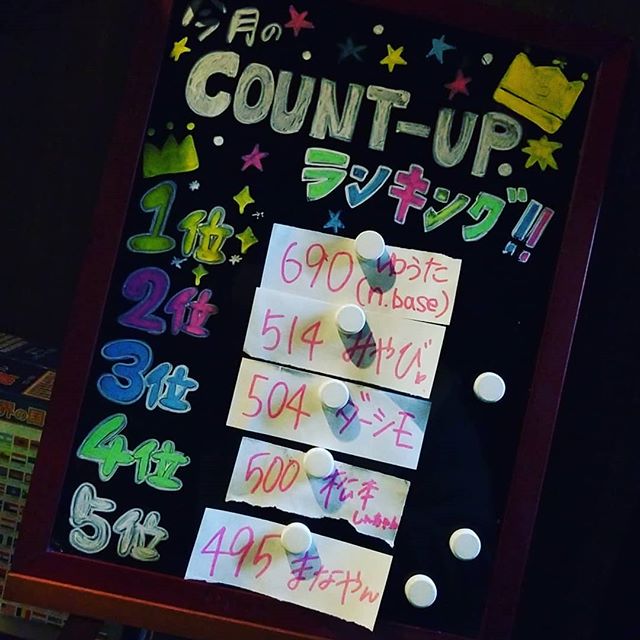 今月の
COUNT-UP.
ランキング!!
1位
690 ゆうた
(n.base)
2位
514 みやび
3位
504 ダーシモ
4位
500 松本
しんちゃん
5位
495 まなやん